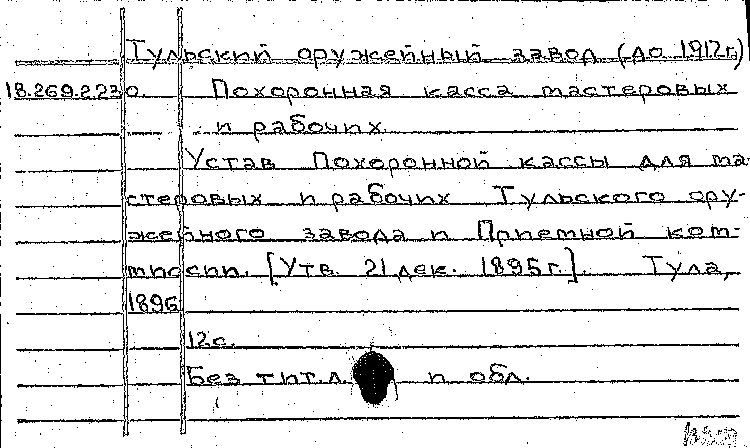 Тульский оружейный завод (до 1917г.)
18.269.2.230. Похоронная касса мастеровых
и рабочих.
Устав Похоронной кассы для ма-
стеровых и рабочих Тульского ору-
жейного завода и Приемной ком-
миссии. [Утв. 21 дек. 1895г.]. Тула,
1896
12с.
Без тит.л. и обл.